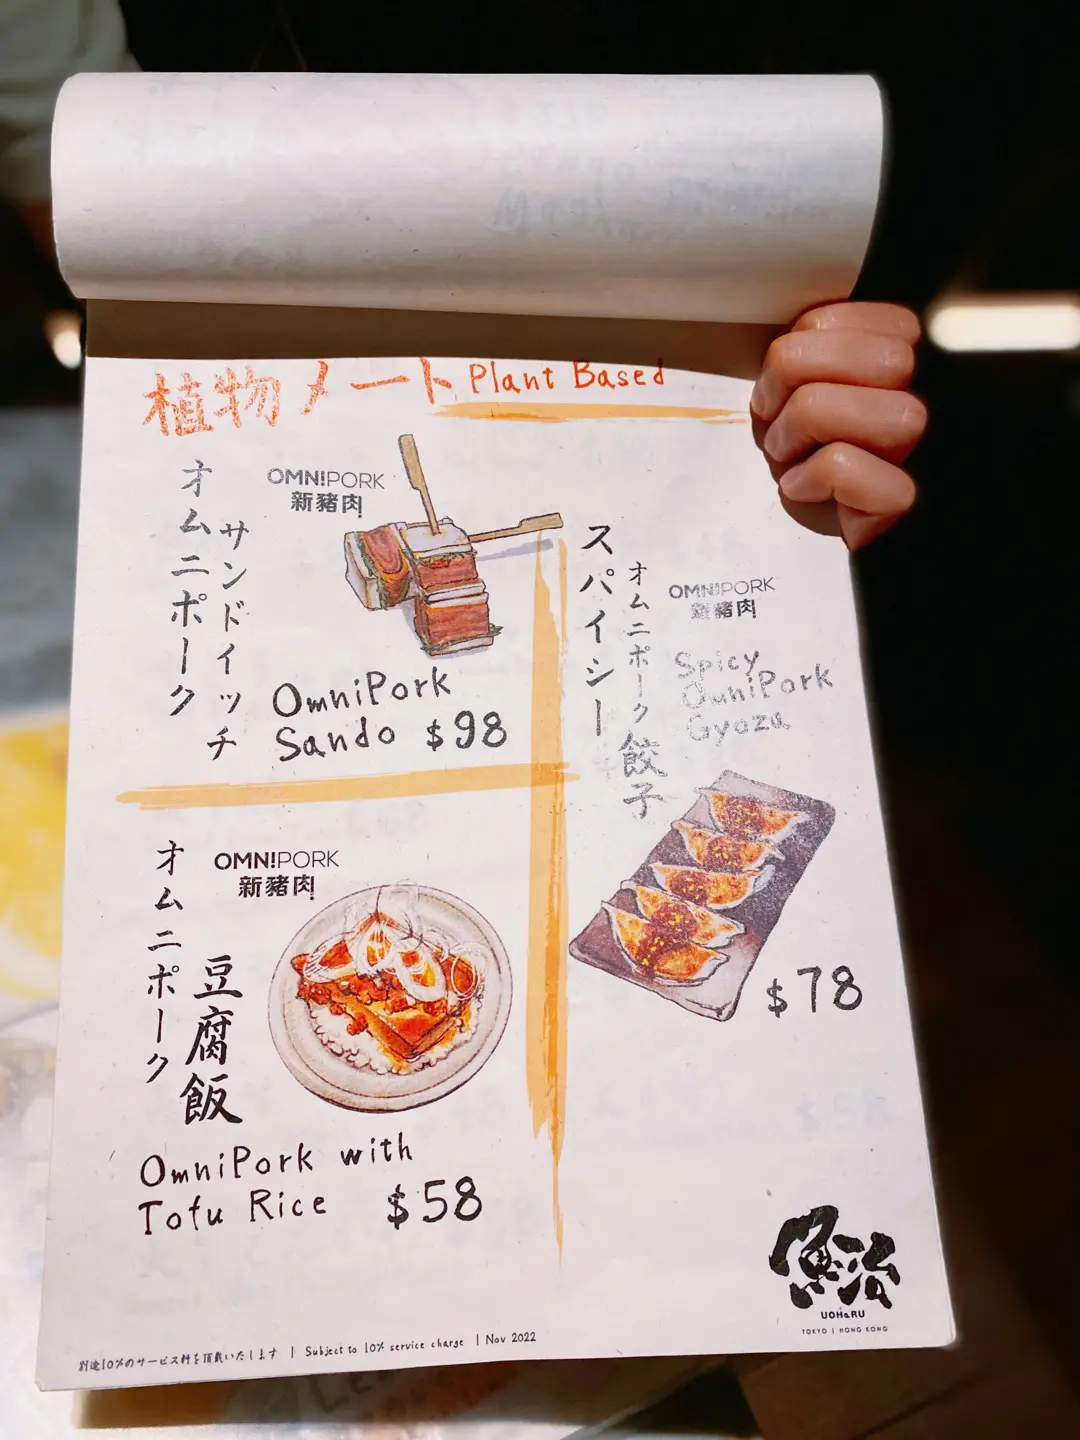 植物メート Plant Based
オムニポーク
サンドイッチ
OMNIPORK
新豬肉
OmniPork
Sando $98
スパイシー
オムニポーク餃子
OMNIPORK
新豬肉
Spicy
OmniPork
Gyoza
$78
オムニポーク
豆腐飯
OMNIPORK
新豬肉
OmniPork with
Tofu Rice $58
魚治
UOHaRU
TOKYO | HONG KONG
別途10%のサービス料を頂戴いたします | Subject to 10% service charge | Nov 2022